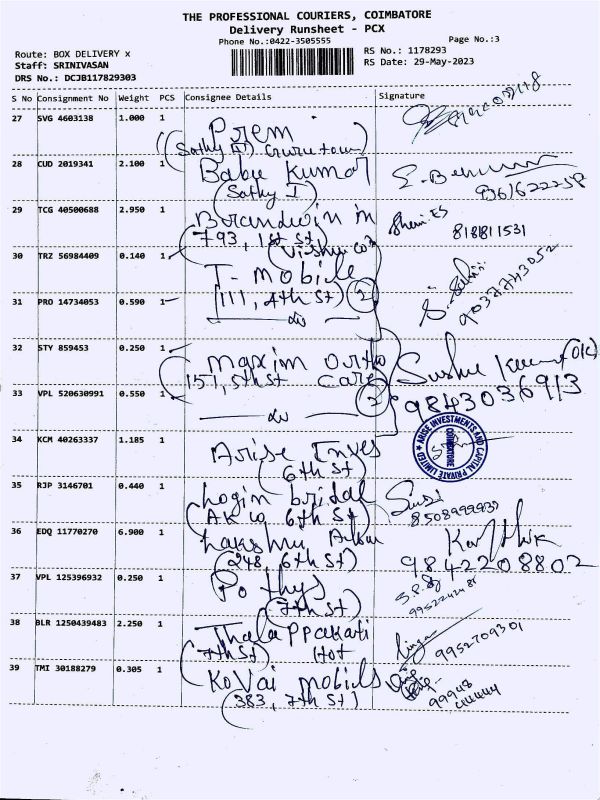 THE PROFESSIONAL COURIERS, COIMBATORE
Delivery Runsheet - PCX
Phone No.:0422-3505555 Page No.:3
Route: BOX DELIVERY x RS No.: 1178293
Staff: SRINIVASAN RS Date: 29-May-2023
DRS No.: DCJB117829303
S No Consignment No Weight PCS Consignee Details Signature
27 SVG 4603138 1.000 1 Prem
(Sathy
28 CUD 2019341 2.100 1 Babu Kumar
(Sathy I)
29 TCG 40500688 2.950 1
793, 1st St)
818811531
30 TRZ 56984409 0.140 1 T-mobile
31 PRO 14734053 0.590 1 (111, 4th St) 2
9037743052
32 STY 859453 0.250 1 Maxim Ortho
157, 5th St Care
33 VPL 520630991 0.550 1 2
9843036913
34 KCM 40263337 1.185 1 Arise Inves
(6th St)
ARISE INVESTMENTS AND CAPITAL PRIVATE LIMITED
COIMBATORE
35 RJP 3146701 0.440 1 Login bridal
6th St)
8508999939
36 EDQ 11770270 6.900 1 Lakshmi
(248, 6th St)
Karthik
9842208802
37 VPL 125396932 0.250 1 Pothys
(7th St)
38 BLR 1250439483 2.250 1 Thalappakati
(7th St) Hot
9952709301
39 TMI 30188279 0.305 1 Kovai mobils
(383, 7th St)
99948
44444